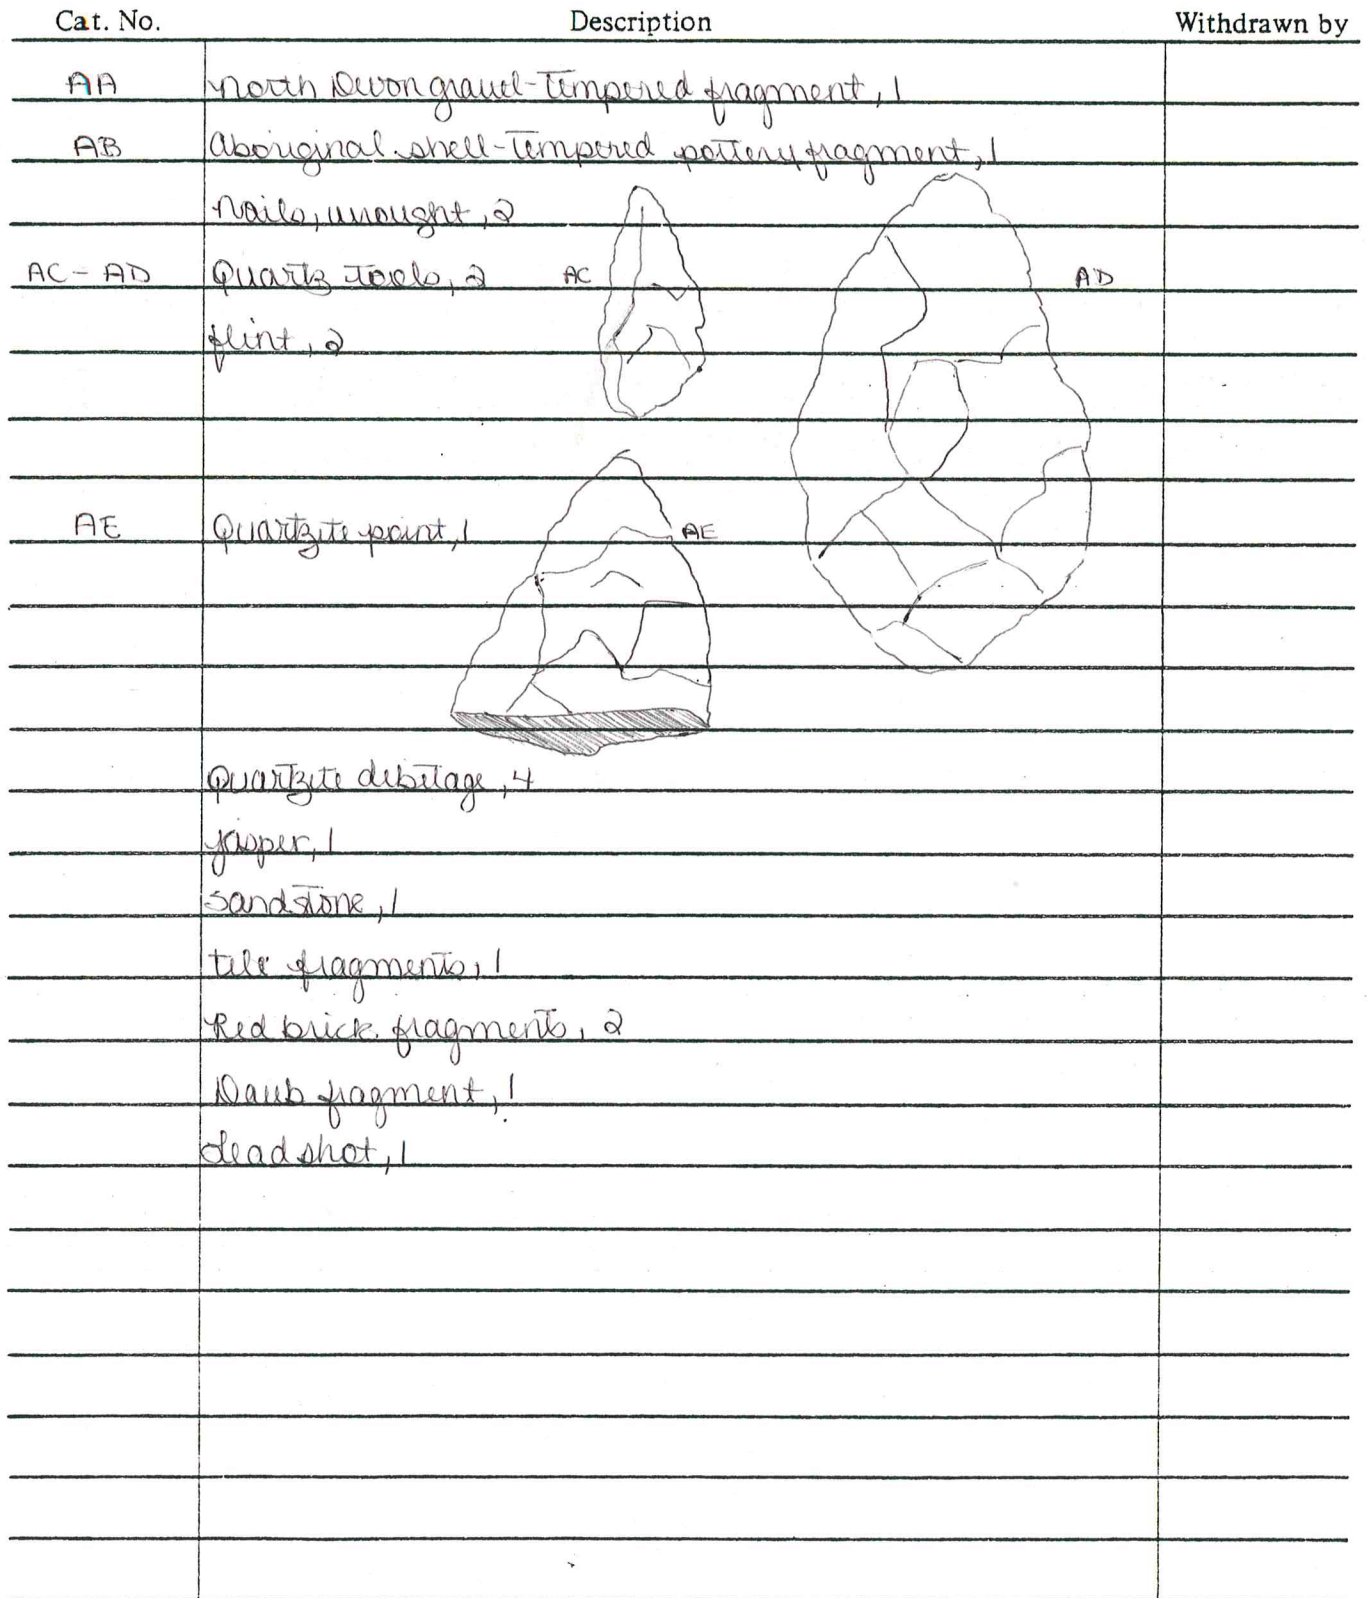 Cat. No. Description Withdrawn by
AA North Devon gravel-Tempered fragment, 1
AB Aboriginal shell-Tempered pottery fragment, 1
Nails, wrought, 2
AC - AD Quartz tools, 2 AC AD
flint, 2
AE Quartzite point, 1 AE
Quartzite debitage, 4
jasper, 1
sandstone, 1
tile fragments, 1
Red brick fragments, 2
Daub fragment, 1
Lead shot, 1